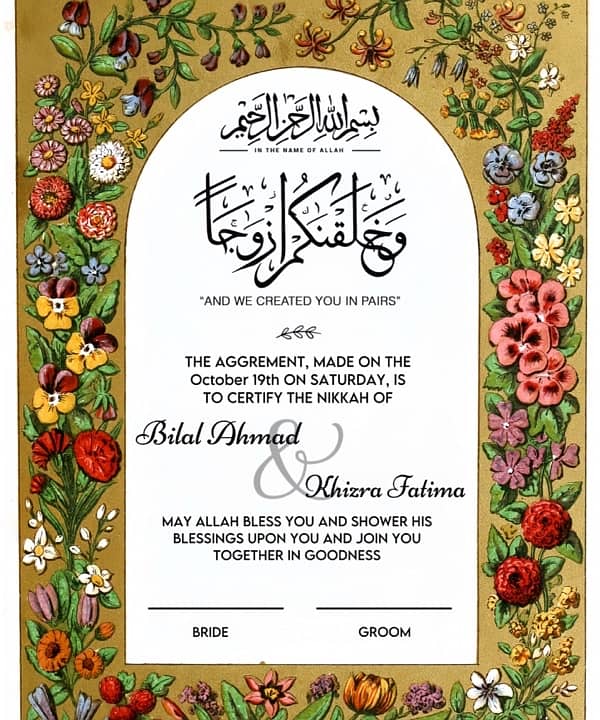 بسم الله الرحمن الرحيم
IN THE NAME OF ALLAH
وَخَلَقْنَكُمْ أَزْوَجًا
"AND WE CREATED YOU IN PAIRS"
THE AGGREMENT, MADE ON THE
October 19th ON SATURDAY, IS
TO CERTIFY THE NIKKAH OF
Bilal Ahmad
&
Khizra Fatima
MAY ALLAH BLESS YOU AND SHOWER HIS
BLESSINGS UPON YOU AND JOIN YOU
TOGETHER IN GOODNESS
BRIDE GROOM